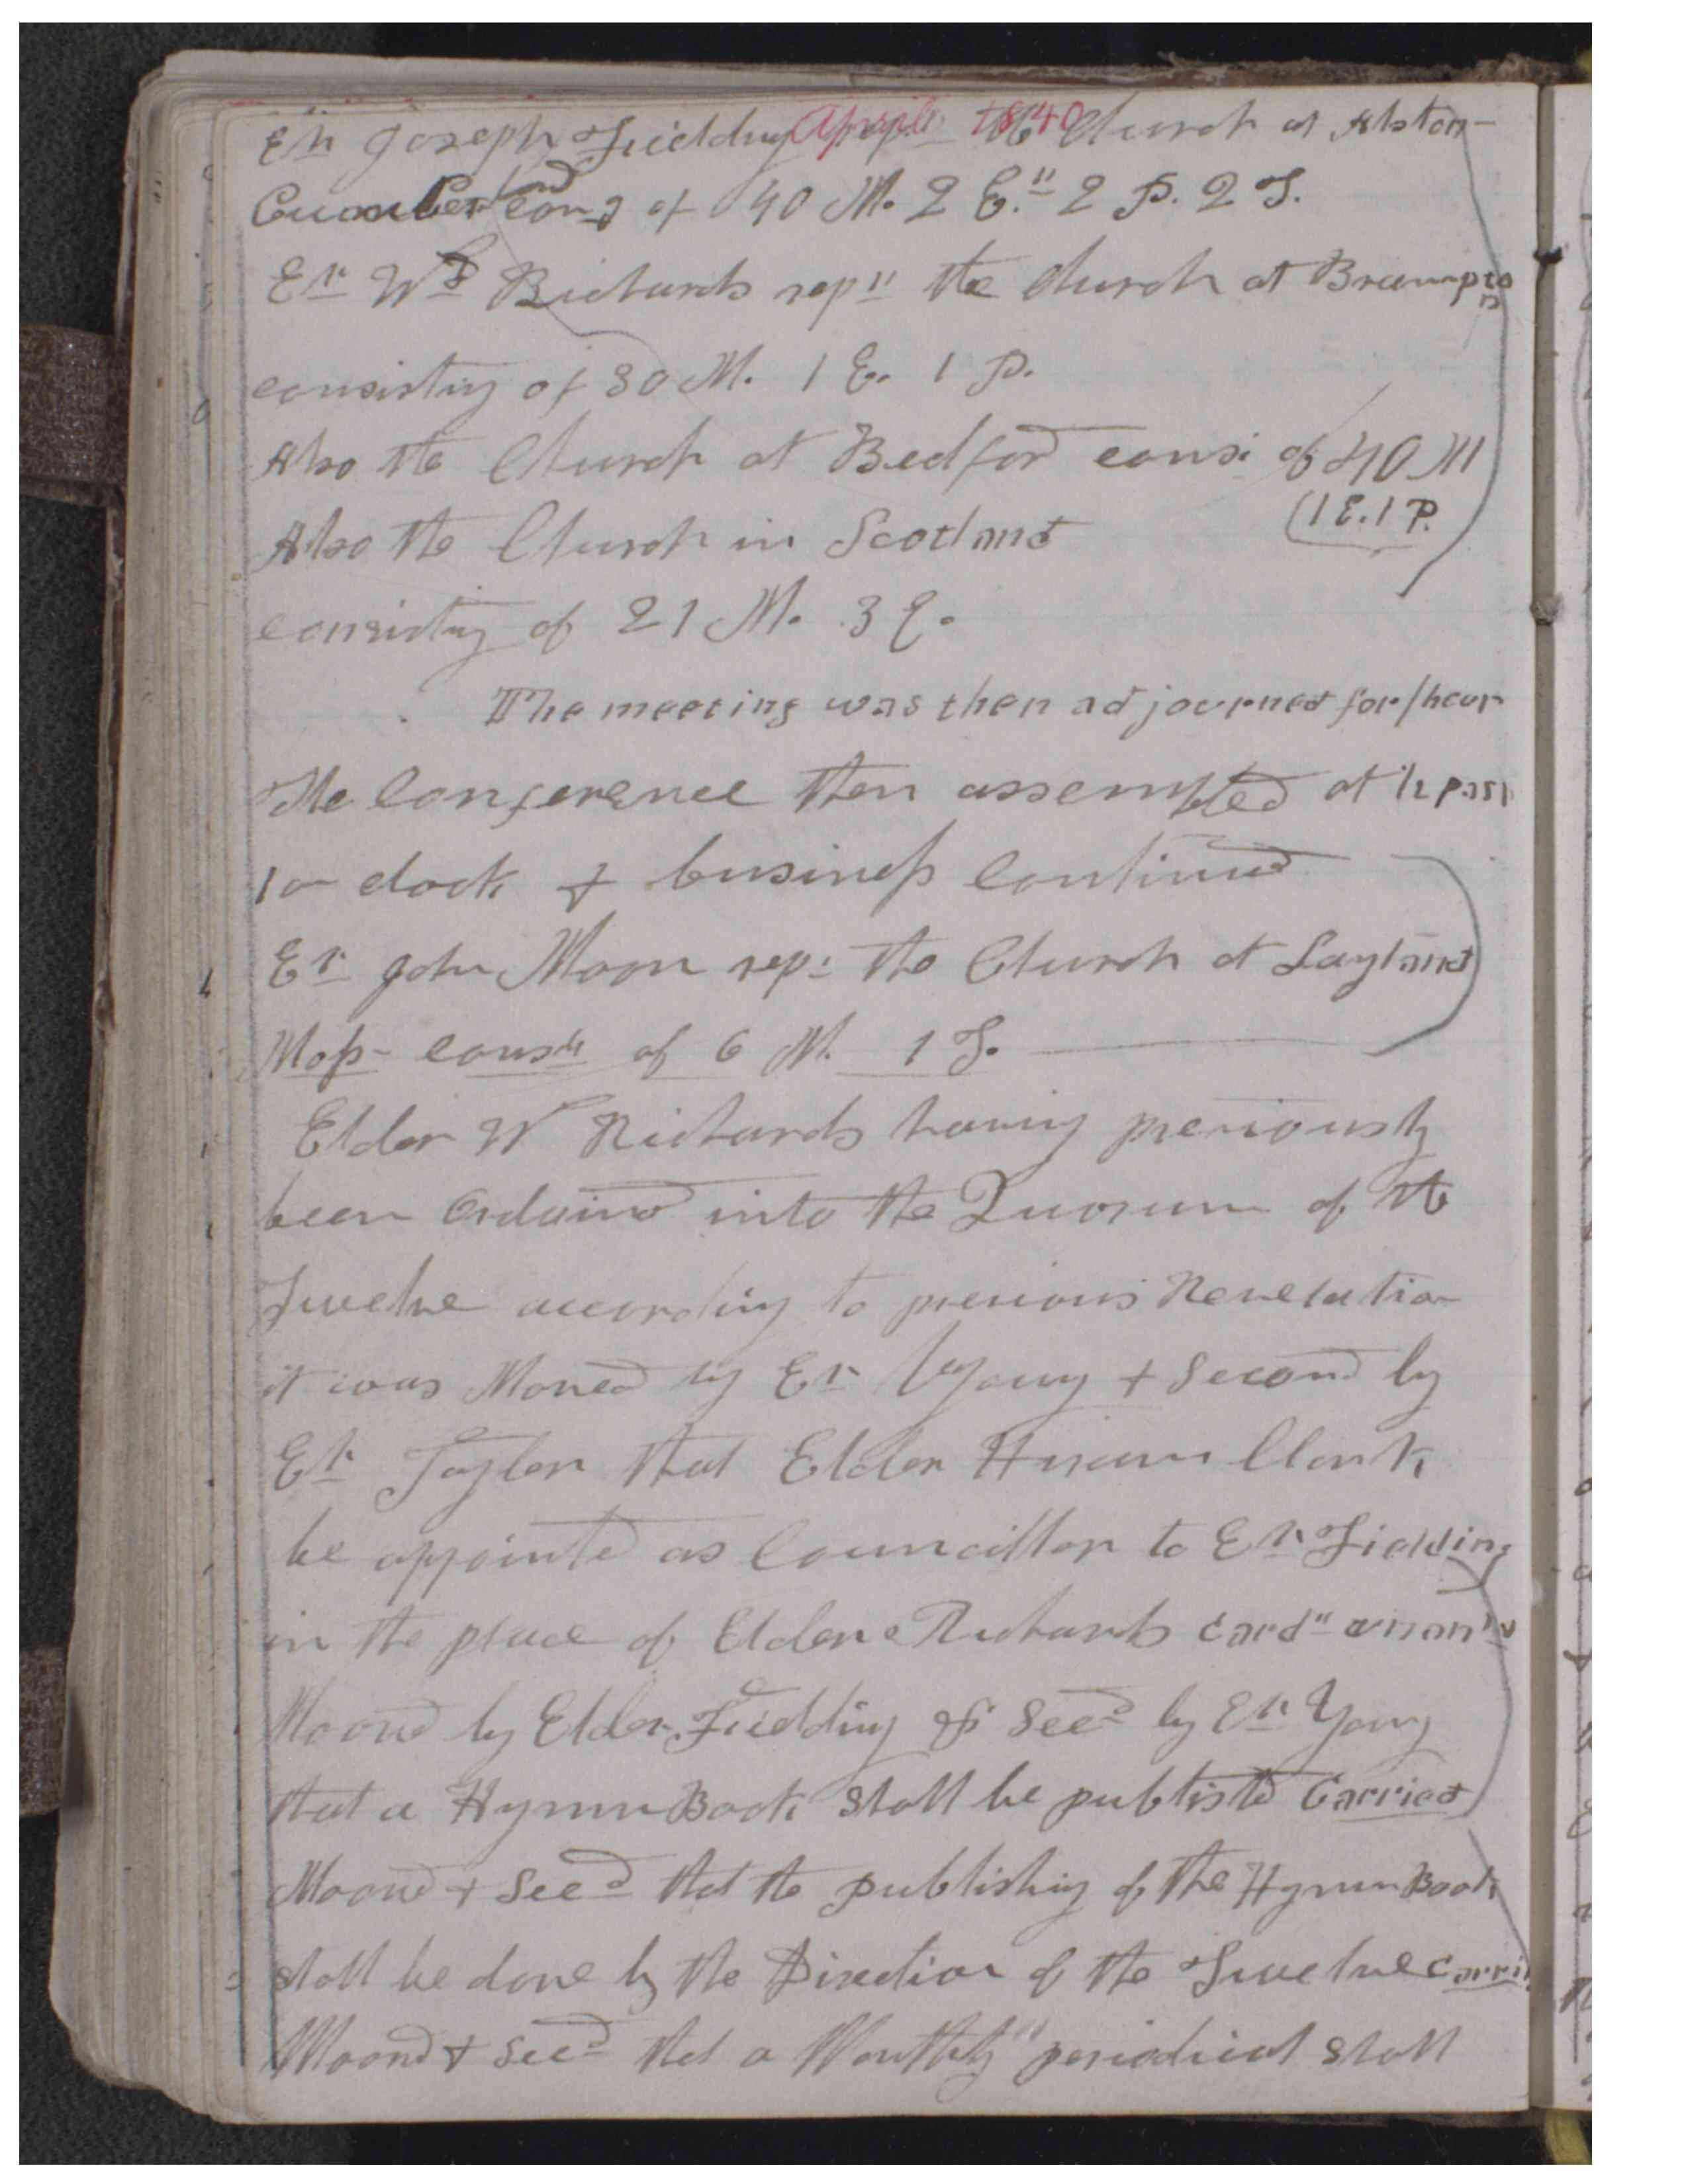 April 1840
Er. Joseph Fielding rep. the Church at Alston-
Cumberland cong of 40 M. 2 E." 2 P. 2 T.
Er. Wd Richards rep" the church at Brampton
consisting of 30 M. 1 E. 1 P.
Also the Church at Bedford consi of 40 M
(1 E. 1 P.
Also the Church in Scotland
consisting of 21 M. 3 E.
The meeting was then adjourned for 1 hour
The Conference then assembled at ½ past
1 o clock & business Continued
Er John Moon rep: the Church at Layland
Moss - cons" of 6 M. 1 T.
Elder W Richards having previously
been Ordained into the Quorum of the
Twelve according to previous Revelation
it was Moved by Er Young & Second by
Er Taylor that Elder Hiram Clark
be appointed as Councillor to Er Fielding
in the place of Elder Richards card" unan
Moovd by Elder Fielding & Secd by Er Young
that a Hymn Book shall be published Carried
Moovd & Secd that the publishing of the Hymn Book
shall be done by the Direction of the Twelve carrid
Moovd & Secd that a Monthly periodical shall